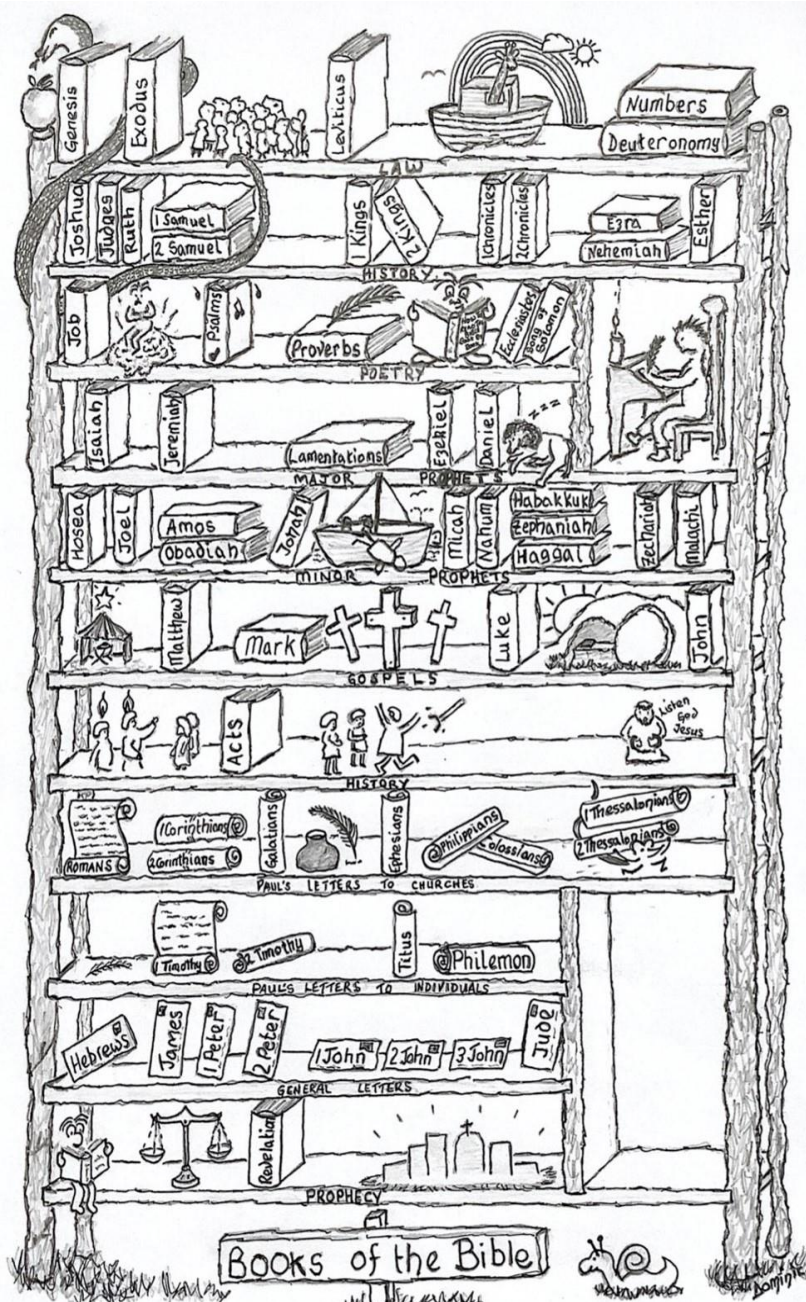 Genesis
Exodus
Leviticus
Numbers
Deuteronomy
LAW
Joshua
Judges
Ruth
1 Samuel
2 Samuel
1 Kings
2 Kings
1Chronicles
2Chronicles
Ezra
Nehemiah
Esther
HISTORY
Job
Psalms
Proverbs
Ecclesiastes
Song of
Solomon
POETRY
Isaiah
Jeremiah
Lamentations
Ezekiel
Daniel
ZZZ
MAJOR PROPHETS
Hosea
Joel
Amos
Obadiah
Jonah
Micah
Nahum
Habakkuk
Zephaniah
Haggai
Zechariah
Malachi
MINOR PROPHETS
Matthew
Mark
Luke
John
GOSPELS
Acts
Listen
God
Jesus
HISTORY
ROMANS
1Corinthians
2Corinthians
Galatians
Ephesians
Philippians
Colossians
1 Thessalonians
2 Thessalonians
PAUL'S LETTERS TO CHURCHES
1 Timothy
2 Timothy
Titus
Philemon
PAUL'S LETTERS TO INDIVIDUALS
Hebrews
James
1 Peter
2 Peter
1John
2John
3John
Jude
GENERAL LETTERS
Revelation
PROPHECY
BOOKS of the Bible
Dominic